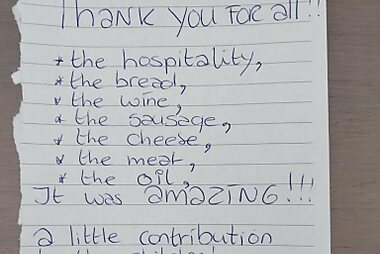 Thank you for all!!
* the hospitality,
* the bread,
* the wine,
* the sausage,
* the cheese,
* the meat,
* the oil,
It was AMAZING!!!
a little contribution